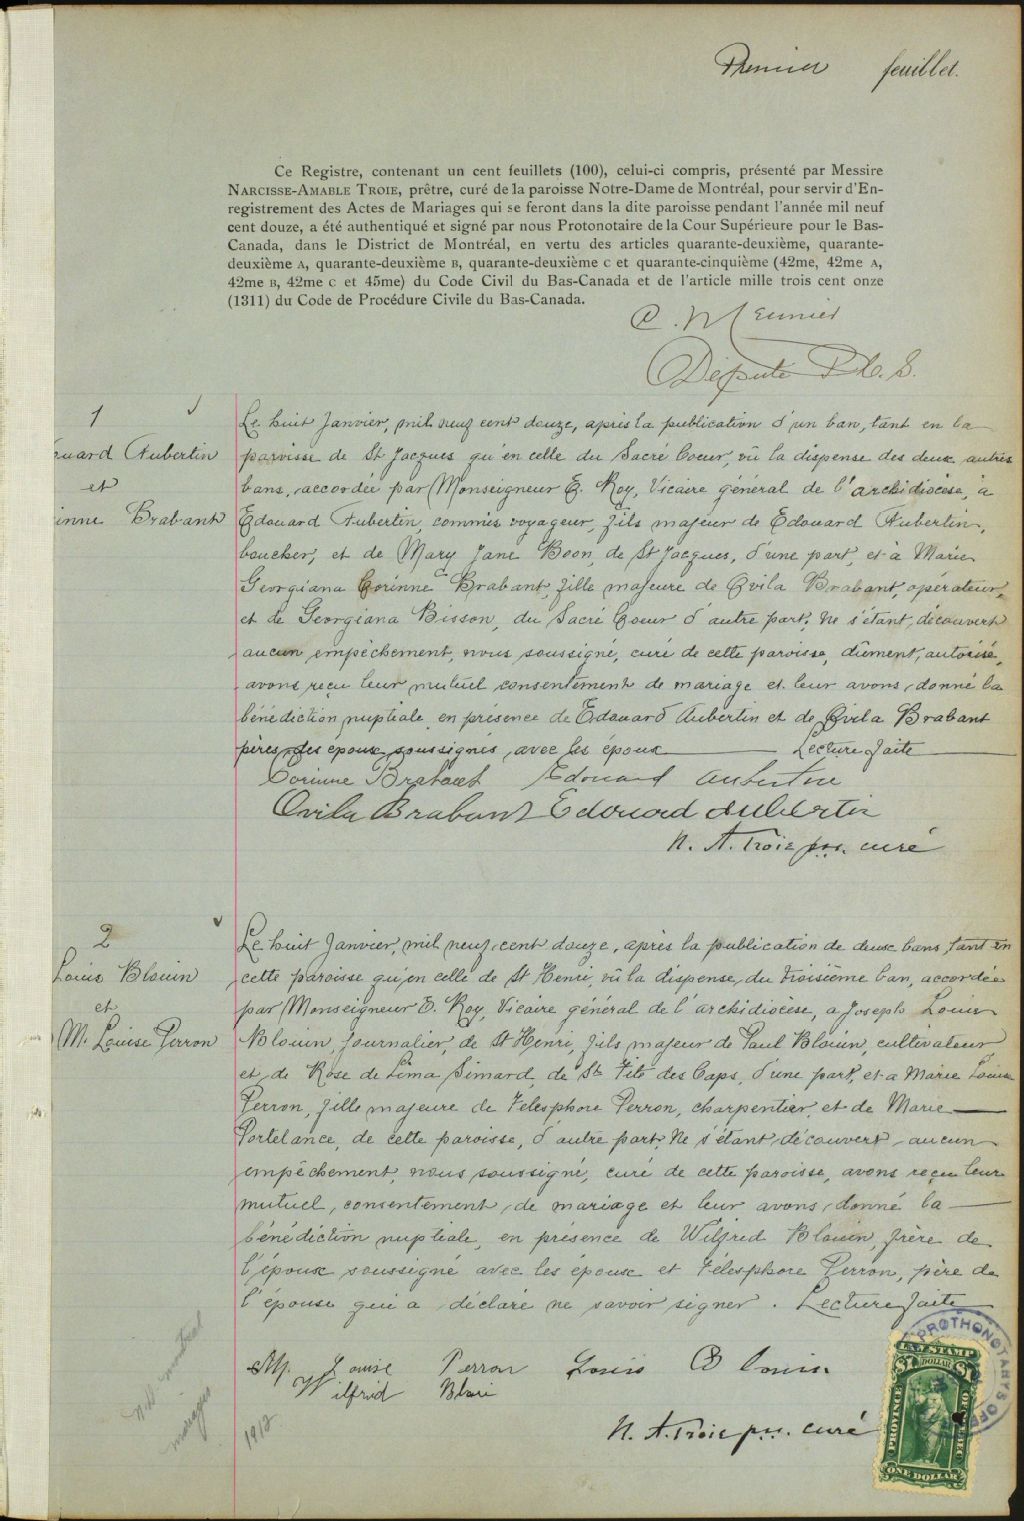 Premier feuillet.
Ce Registre, contenant un cent feuillets (100), celui-ci compris, présenté par Messire
NARCISSE-AMABLE TROIE, prêtre, curé de la paroisse Notre-Dame de Montréal, pour servir d'En-
registrement des Actes de Mariages qui se feront dans la dite paroisse pendant l'année mil neuf
cent douze, a été authentiqué et signé par nous Protonotaire de la Cour Supérieure pour le Bas-
Canada, dans le District de Montréal, en vertu des articles quarante-deuxième, quarante-
deuxième A, quarante-deuxième B, quarante-deuxième C et quarante-cinquième (42me, 42me A,
42me B, 42me C et 45me) du Code Civil du Bas-Canada et de l'article mille trois cent onze
(1311) du Code de Procédure Civile du Bas-Canada.
C. Meunier
Député P.C.S.
1
ouard Aubertin
et
inne Brabant
Le huit Janvier, mil neuf cent douze, après la publication d'un ban, tant en la
paroisse de St Jacques qu'en celle du Sacré Coeur, vû la dispense des deux autres
bans, accordée par Monseigneur E. Roy, Vicaire général de l'archidiocèse, à
Edouard Aubertin, commis voyageur, fils majeur de Edouard Aubertin,
boucher, et de Mary Jane Boon, de St Jacques, d'une part, et à Marie
Georgiana Corinne Brabant, fille majeure de Ovila Brabant, opérateur,
et de Georgiana Bisson, du Sacré Coeur d'autre part, ne s'étant découvert
aucun empêchement, nous soussigné, curé de cette paroisse, dûment autorisé,
avons reçu leur mutuel consentement de mariage et leur avons donné la
bénédiction nuptiale en présence de Edouard Aubertin et de Ovila Brabant
pères des époux soussignés avec les époux Lecture faite
Corinne Brabant Edouard Aubertin
Ovila Brabant Edouard Aubertin
N. A. Troie ptre. curé
2
Louis Blouin
et
M. Louise Perron
Le huit Janvier, mil neuf cent douze, après la publication de deux bans, tant en
cette paroisse qu'en celle de St Henri, vû la dispense du troisième ban, accordée
par Monseigneur E. Roy, Vicaire général de l'archidiocèse, a Joseph Louis
Blouin, journalier, de St Henri, fils majeur de Paul Blouin, cultivateur
et de Rose de Lima Simard, de St Tite des Caps, d'une part, et a Marie Louise
Perron, fille majeure de Télesphore Perron, charpentier, et de Marie
Portelance, de cette paroisse, d'autre part, ne s'étant découvert aucun
empêchement, nous soussigné, curé de cette paroisse, avons reçu leur
mutuel consentement de mariage et leur avons donné la
bénédiction nuptiale, en présence de Wilfred Blouin, frère de
l'époux soussigné avec les époux et Télesphore Perron, père de
l'épouse qui a déclaré ne savoir signer. Lecture faite
M. Louise Perron Louis Blouin
Wilfrid Bloui
N. A. Troie ptre. curé
N.D. montreal
mariages
1912
PROTHONOTARY'S OFF
LAW STAMP
$1 DOLLAR $1
PROVINCE OF QUEBEC
ONE DOLLAR